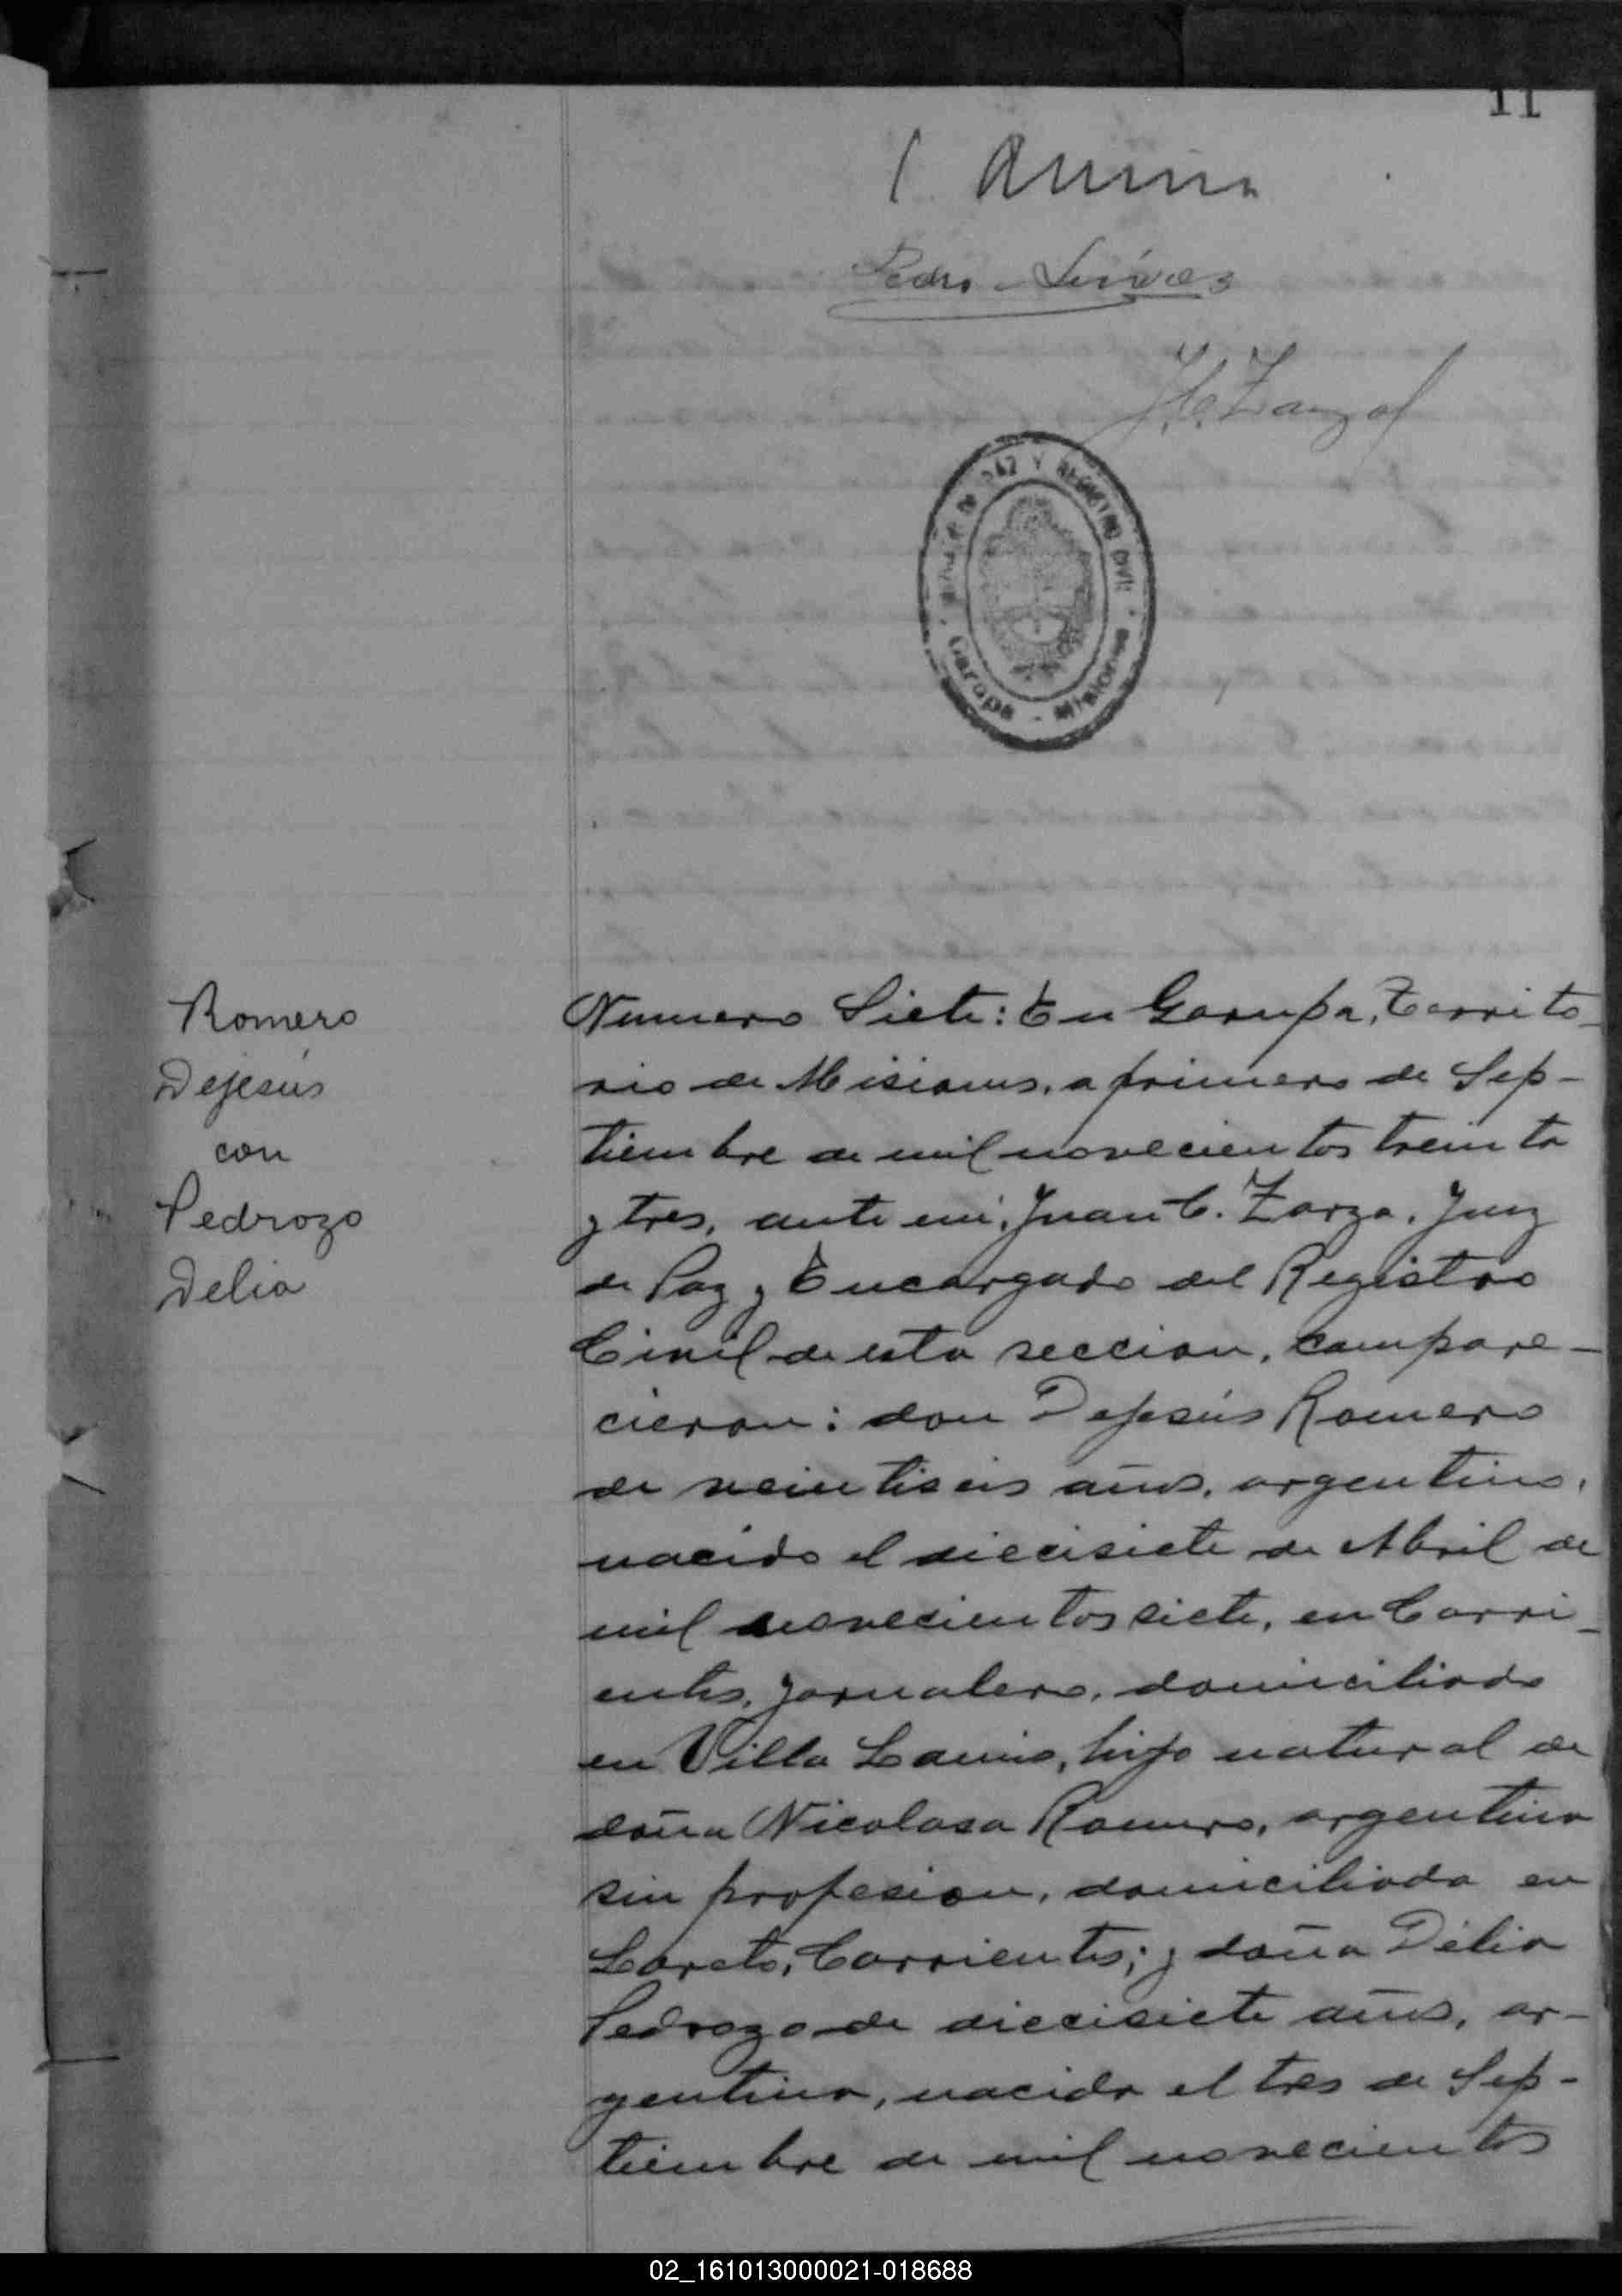 11
Pedro
J.C. Zarza
JUZGADO DE PAZ Y REGISTRO CIVIL
Garupá - Misiones
Romero
Dejesús
con
Pedrozo
Delia
Numero Siete: En Garupa, Territo-
rio de Misiones, a primero de Sep-
tiembre de mil novecientos treinta
y tres, ante mi, Juan C. Zarza, Juez
de Paz y Encargado del Registro
Civil de esta seccion, compare-
cieron: don Dejesús Romero
de veintiseis años, argentino,
nacido el diecisiete de Abril de
mil novecientos siete, en Corri-
entes, jornalero, domiciliado
en Villa Lanus, hijo natural de
doña Nicolasa Romero, argentina
sin profesion, domiciliada en
Loreto, Corrientes; y doña Délia
Pedrozo de diecisiete años, ar-
gentina, nacida el tres de Sep-
tiembre de mil novecientos
02_161013000021-018688